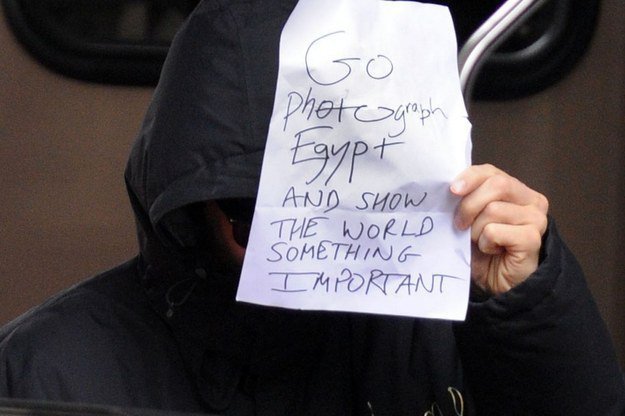 Go
photograph
Egypt
AND SHOW
THE WORLD
SOMETHING
IMPORTANT